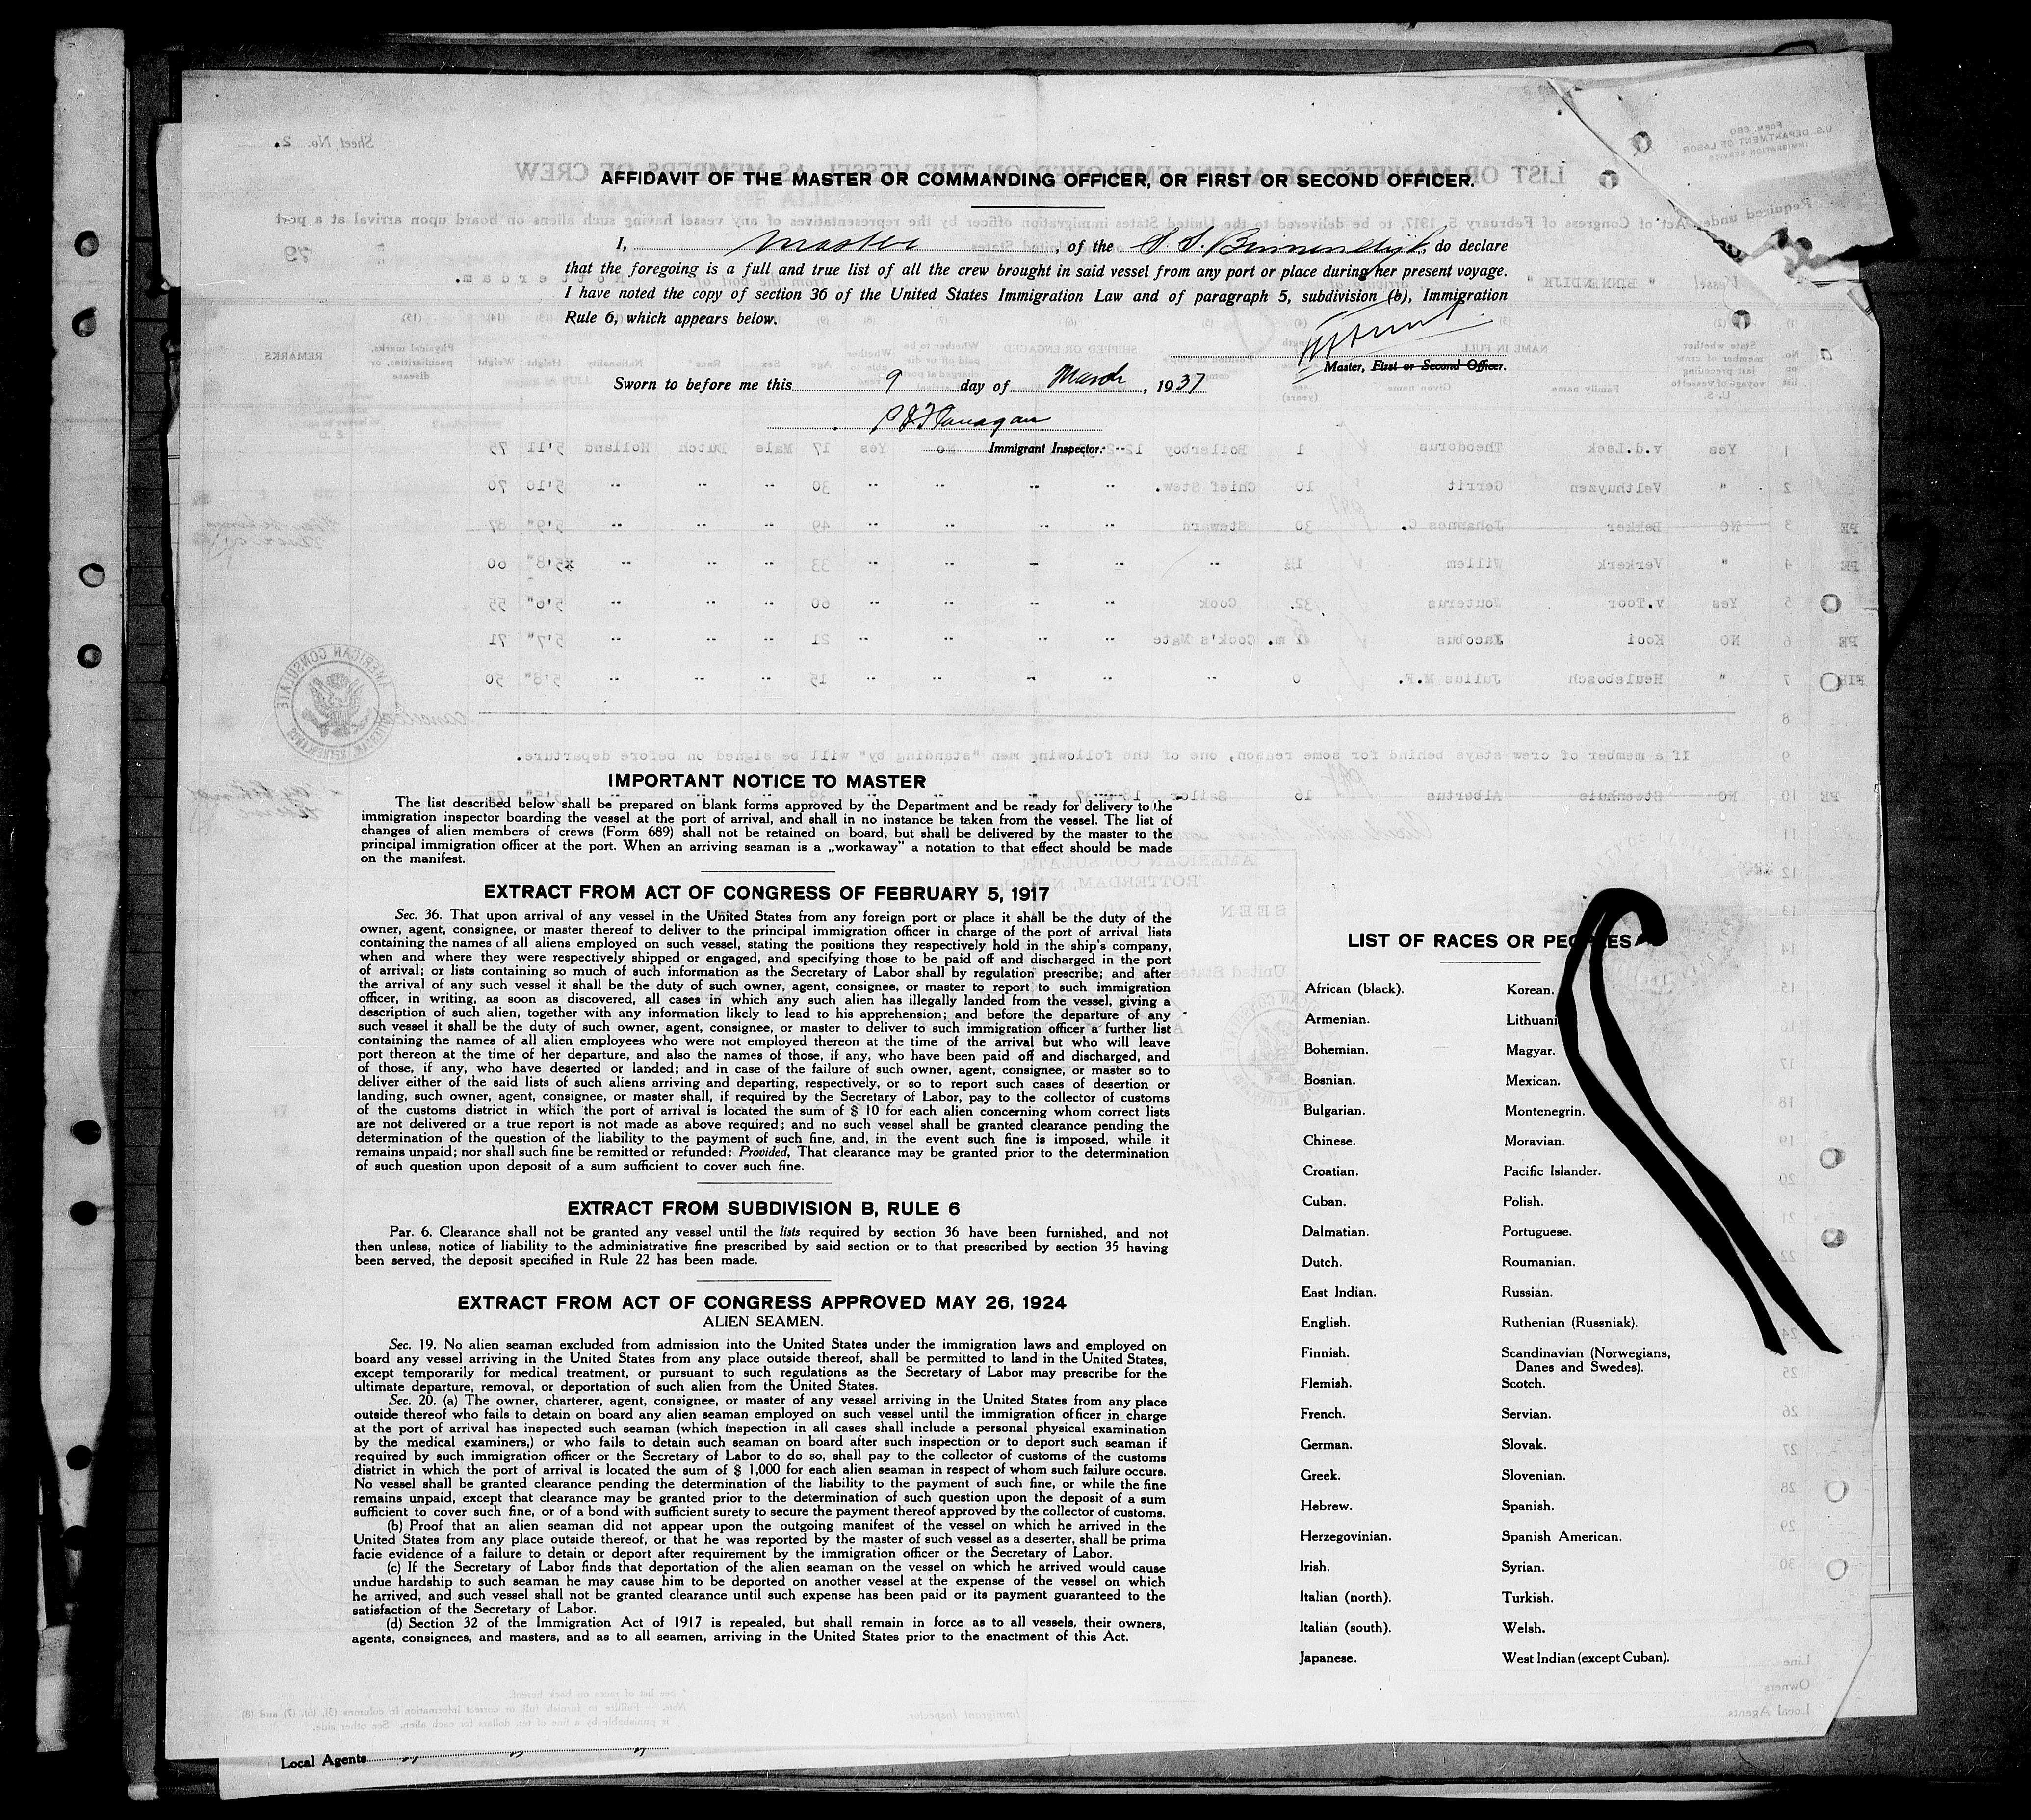 AFFIDAVIT OF THE MASTER OR COMMANDING OFFICER, OR FIRST OR SECOND OFFICER.
I, Master, of the S. S. Binnendijk, do declare
that the foregoing is a full and true list of all the crew brought in said vessel from any port or place during her present voyage.
I have noted the copy of section 36 of the United States Immigration Law and of paragraph 5, subdivision (b), Immigration
Rule 6, which appears below.
Master, First or Second Officer.
Sworn to before me this 9 day of March, 1937
Flanagan
Immigrant Inspector.
IMPORTANT NOTICE TO MASTER
The list described below shall be prepared on blank forms approved by the Department and be ready for delivery to the
immigration inspector boarding the vessel at the port of arrival, and shall in no instance be taken from the vessel. The list of
changes of alien members of crews (Form 689) shall not be retained on board, but shall be delivered by the master to the
principal immigration officer at the port. When an arriving seaman is a „workaway” a notation to that effect should be made
on the manifest.
EXTRACT FROM ACT OF CONGRESS OF FEBRUARY 5, 1917
Sec. 36. That upon arrival of any vessel in the United States from any foreign port or place it shall be the duty of the
owner, agent, consignee, or master thereof to deliver to the principal immigration officer in charge of the port of arrival lists
containing the names of all aliens employed on such vessel, stating the positions they respectively hold in the ship's company,
when and where they were respectively shipped or engaged, and specifying those to be paid off and discharged in the port
of arrival; or lists containing so much of such information as the Secretary of Labor shall by regulation prescribe; and after
the arrival of any such vessel it shall be the duty of such owner, agent, consignee, or master to report to such immigration
officer, in writing, as soon as discovered, all cases in which any such alien has illegally landed from the vessel, giving a
description of such alien, together with any information likely to lead to his apprehension; and before the departure of any
such vessel it shall be the duty of such owner, agent, consignee, or master to deliver to such immigration officer a further list
containing the names of all alien employees who were not employed thereon at the time of the arrival but who will leave
port thereon at the time of her departure, and also the names of those, if any, who have been paid off and discharged, and
of those, if any, who have deserted or landed; and in case of the failure of such owner, agent, consignee, or master so to
deliver either of the said lists of such aliens arriving and departing, respectively, or so to report such cases of desertion or
landing, such owner, agent, consignee, or master shall, if required by the Secretary of Labor, pay to the collector of customs
of the customs district in which the port of arrival is located the sum of $ 10 for each alien concerning whom correct lists
are not delivered or a true report is not made as above required; and no such vessel shall be granted clearance pending the
determination of the question of the liability to the payment of such fine, and, in the event such fine is imposed, while it
remains unpaid; nor shall such fine be remitted or refunded: Provided, That clearance may be granted prior to the determination
of such question upon deposit of a sum sufficient to cover such fine.
EXTRACT FROM SUBDIVISION B, RULE 6
Par. 6. Clearance shall not be granted any vessel until the lists required by section 36 have been furnished, and not
then unless, notice of liability to the administrative fine prescribed by said section or to that prescribed by section 35 having
been served, the deposit specified in Rule 22 has been made.
EXTRACT FROM ACT OF CONGRESS APPROVED MAY 26, 1924
ALIEN SEAMEN.
Sec. 19. No alien seaman excluded from admission into the United States under the immigration laws and employed on
board any vessel arriving in the United States from any place outside thereof, shall be permitted to land in the United States,
except temporarily for medical treatment, or pursuant to such regulations as the Secretary of Labor may prescribe for the
ultimate departure, removal, or deportation of such alien from the United States.
Sec. 20. (a) The owner, charterer, agent, consignee, or master of any vessel arriving in the United States from any place
outside thereof who fails to detain on board any alien seaman employed on such vessel until the immigration officer in charge
at the port of arrival has inspected such seaman (which inspection in all cases shall include a personal physical examination
by the medical examiners,) or who fails to detain such seaman on board after such inspection or to deport such seaman if
required by such immigration officer or the Secretary of Labor to do so, shall pay to the collector of customs of the customs
district in which the port of arrival is located the sum of $ 1,000 for each alien seaman in respect of whom such failure occurs.
No vessel shall be granted clearance pending the determination of the liability to the payment of such fine, or while the fine
remains unpaid, except that clearance may be granted prior to the determination of such question upon the deposit of a sum
sufficient to cover such fine, or of a bond with sufficient surety to secure the payment thereof approved by the collector of customs.
(b) Proof that an alien seaman did not appear upon the outgoing manifest of the vessel on which he arrived in the
United States from any place outside thereof, or that he was reported by the master of such vessel as a deserter, shall be prima
facie evidence of a failure to detain or deport after requirement by the immigration officer or the Secretary of Labor.
(c) If the Secretary of Labor finds that deportation of the alien seaman on the vessel on which he arrived would cause
undue hardship to such seaman he may cause him to be deported on another vessel at the expense of the vessel on which
he arrived, and such vessel shall not be granted clearance until such expense has been paid or its payment guaranteed to the
satisfaction of the Secretary of Labor.
(d) Section 32 of the Immigration Act of 1917 is repealed, but shall remain in force as to all vessels, their owners,
agents, consignees, and masters, and as to all seamen, arriving in the United States prior to the enactment of this Act.
LIST OF RACES OR PEOPLES
African (black).
Armenian.
Bohemian.
Bosnian.
Bulgarian.
Chinese.
Croatian.
Cuban.
Dalmatian.
Dutch.
East Indian.
English.
Finnish.
Flemish.
French.
German.
Greek.
Hebrew.
Herzegovinian.
Irish.
Italian (north).
Italian (south).
Japanese.
Korean.
Lithuani
Magyar.
Mexican.
Montenegrin.
Moravian.
Pacific Islander.
Polish.
Portuguese.
Roumanian.
Russian.
Ruthenian (Russniak).
Scandinavian (Norwegians,
Danes and Swedes).
Scotch.
Servian.
Slovak.
Slovenian.
Spanish.
Spanish American.
Syrian.
Turkish.
Welsh.
West Indian (except Cuban).
Local Agents